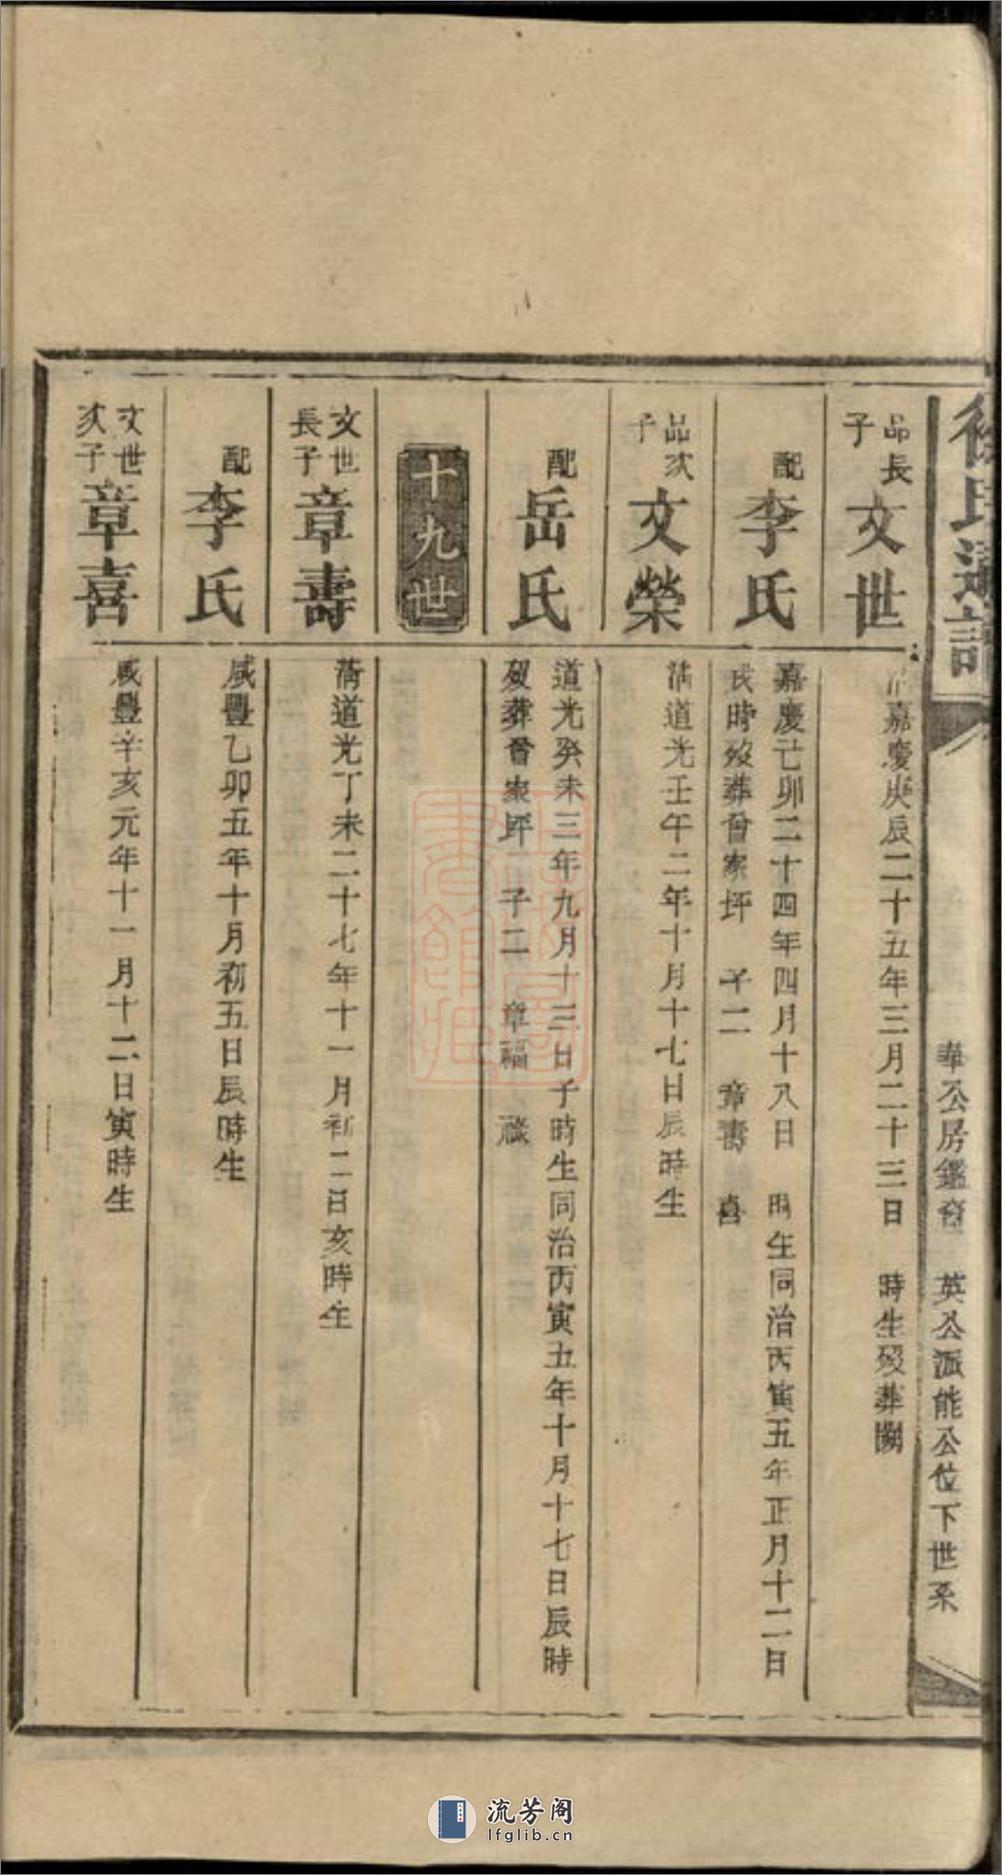 徐氏通譜
奉公房鑑育 英公派能公位下世系
品長子
文世
清嘉慶庚辰二十五年三月二十三日 時生歿葬闕
配
李氏
嘉慶己卯二十四年四月十八日 時生同治丙寅五年正月十二日
戌時歿葬曾家坪 子二 章壽 喜
品次子
文榮
清道光壬午二年十月十七日辰時生
配
岳氏
道光癸未三年九月十三日子時生同治丙寅五年十月十七日辰時
歿葬曾家坪 子二 章福 祿
十九世
文世長子
章壽
清道光丁未二十七年十一月初二日亥時生
配
李氏
咸豐乙卯五年十月初五日辰時生
文世次子
章喜
咸豐辛亥元年十一月十二日寅時生
流芳阁
lfglib.cn